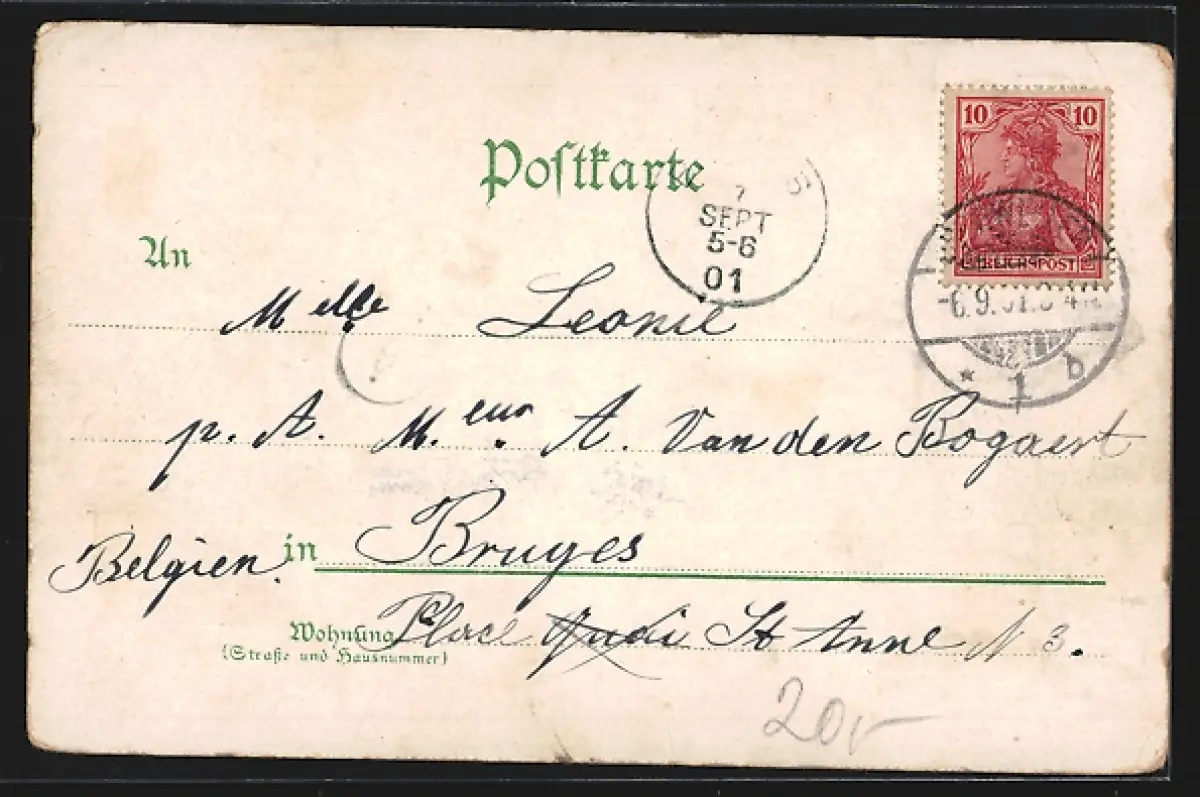 10 10
REICHSPOST
Postkarte
7
SEPT
5-6
01
An
Melle Leonie
-6.9.01.
* 1 b
p. A. M.eur A. Van den Bogaert
in Bruges
Belgien.
Wohnung Place St Anne N 3.
(Straße und Hausnummer)
20,-